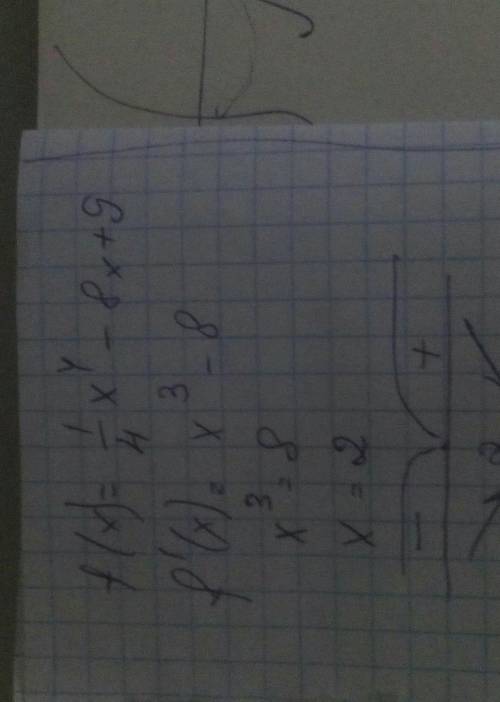 f(x) = 1/4 x⁴ - 8x + 9
f'(x) = x³ - 8
x³ = 8
x = 2
- +
2